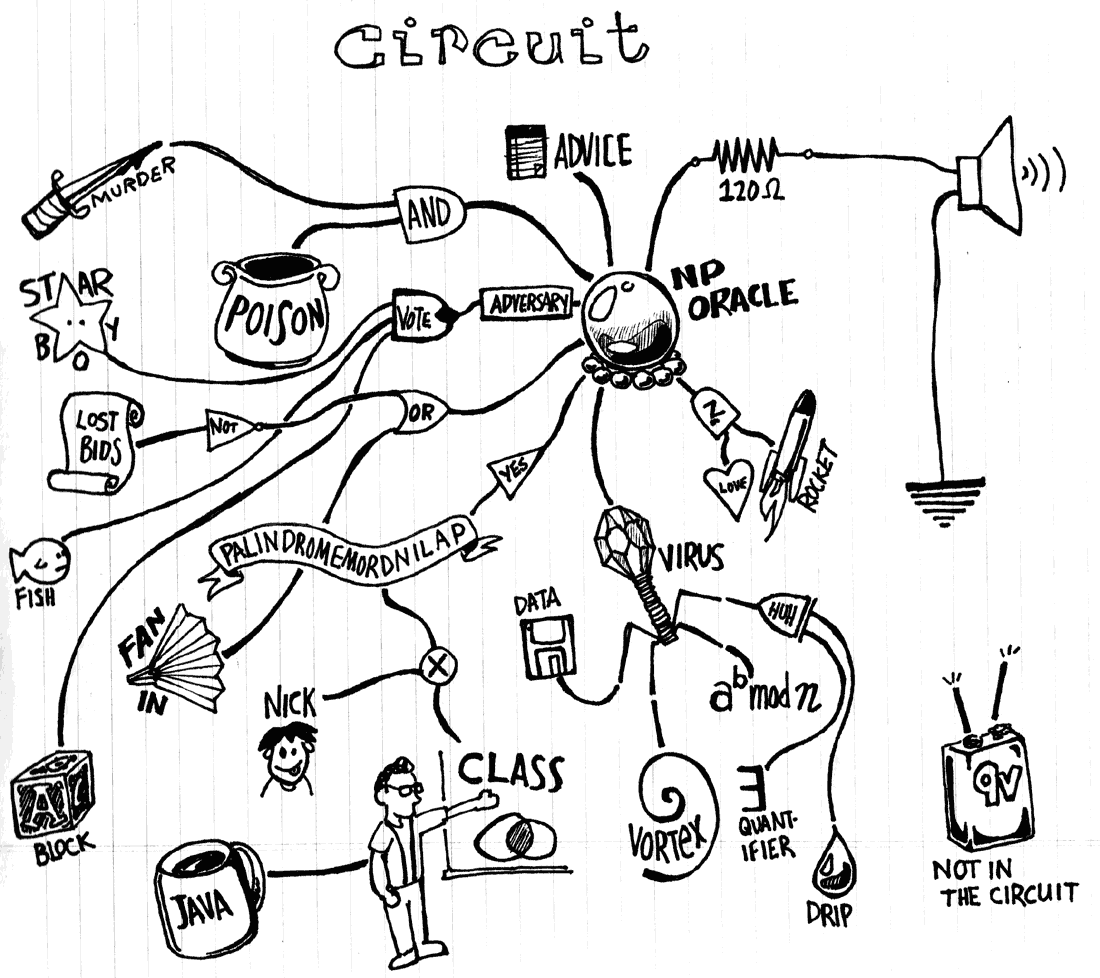 circuit
MURDER
AND
ADVICE
120Ω
POISON
STAR
BOY
VOTE
ADVERSARY
NP
ORACLE
LOST
BIDS
NOT
OR
YES
Z
LOVE
ROCKET
PALINDROMEMORDNILAP
FISH
VIRUS
DATA
HUH
FAN
IN
a^b mod n
NICK
X
CLASS
A
BLOCK
JAVA
VORTEX
∃
QUANT-
IFIER
DRIP
9V
NOT IN
THE CIRCUIT